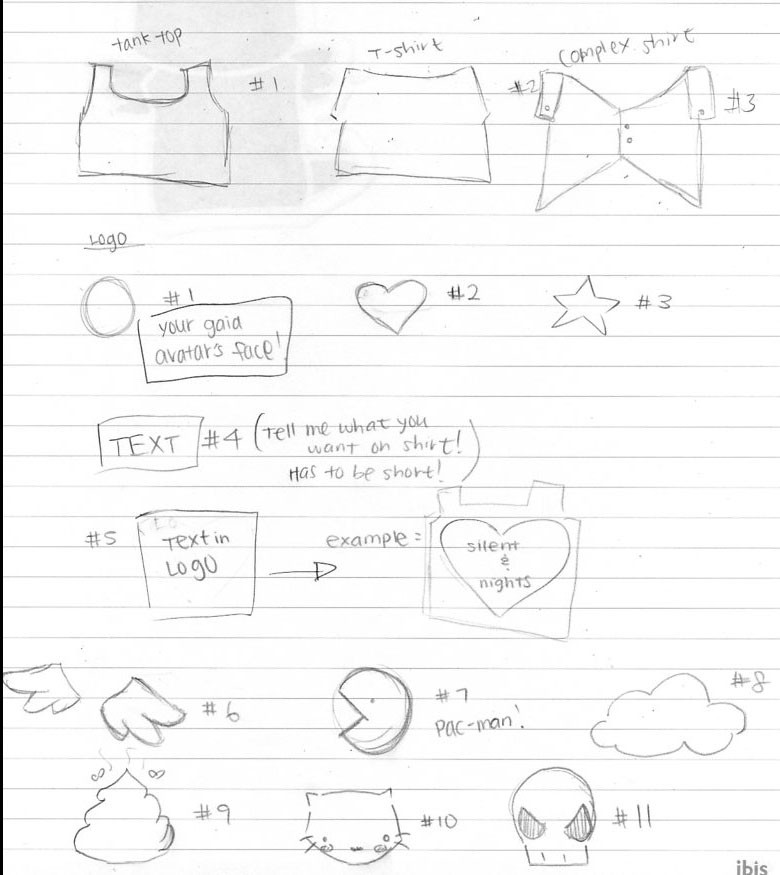 tank top
T-shirt
complex shirt
#1
#2
#3
Logo
#1
your gaia
avatar's face!
#2
#3
TEXT
#4 (Tell me what you
want on shirt!
Has to be short!)
#5
Text in
LOGO
example =
silent
&
nights
#6
#7
pac-man!
#8
#9
#10
#11
ibis